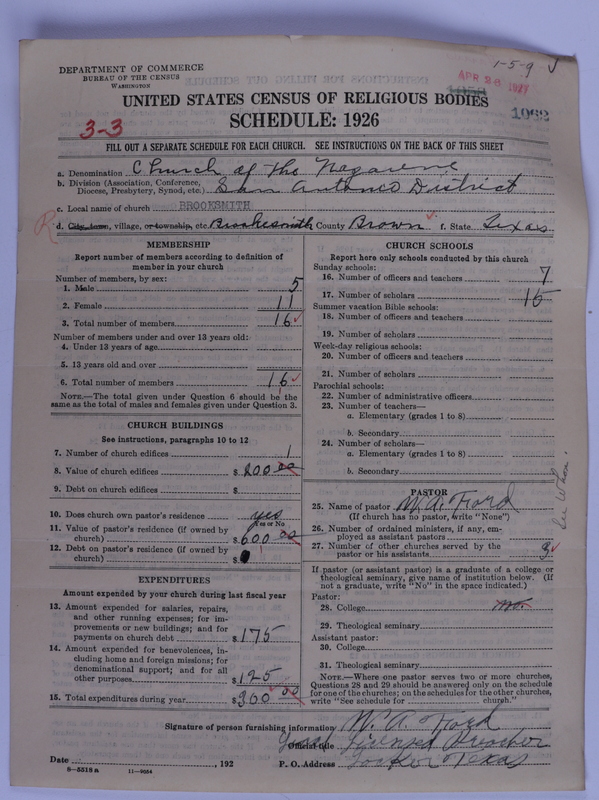 1-5-9
DEPARTMENT OF COMMERCE
BUREAU OF THE CENSUS
WASHINGTON
APR 26 1927
1062
UNITED STATES CENSUS OF RELIGIOUS BODIES
SCHEDULE: 1926
3-3
FILL OUT A SEPARATE SCHEDULE FOR EACH CHURCH. SEE INSTRUCTIONS ON THE BACK OF THIS SHEET
a. Denomination Church of the Nazarene
b. Division (Association, Conference, Diocese, Presbytery, Synod, etc.) San Antonio District
c. Local name of church BROOKSMITH
R d. City, town, village, or township, etc. Brookesmith County Brown f. State Texas
MEMBERSHIP
Report number of members according to definition of member in your church
Number of members, by sex:
1. Male 5
2. Female 11
3. Total number of members 16
Number of members under and over 13 years old:
4. Under 13 years of age
5. 13 years old and over
6. Total number of members 16
NOTE.—The total given under Question 6 should be the same as the total of males and females given under Question 3.
CHURCH BUILDINGS
See instructions, paragraphs 10 to 12
7. Number of church edifices 1
8. Value of church edifices $ 200.00
9. Debt on church edifices $
10. Does church own pastor's residence yes
Yes or No
11. Value of pastor's residence (if owned by church) $ 600.00
12. Debt on pastor's residence (if owned by church) $
EXPENDITURES
Amount expended by your church during last fiscal year
13. Amount expended for salaries, repairs, and other running expenses; for improvements or new buildings; and for payments on church debt $ 175
14. Amount expended for benevolences, including home and foreign missions; for denominational support; and for all other purposes $ 125
15. Total expenditures during year $ 300.00
CHURCH SCHOOLS
Report here only schools conducted by this church
Sunday schools:
16. Number of officers and teachers 7
17. Number of scholars 15
Summer vacation Bible schools:
18. Number of officers and teachers
19. Number of scholars
Week-day religious schools:
20. Number of officers and teachers
21. Number of scholars
Parochial schools:
22. Number of administrative officers
23. Number of teachers—
a. Elementary (grades 1 to 8)
b. Secondary
24. Number of scholars—
a. Elementary (grades 1 to 8)
b. Secondary
PASTOR
25. Name of pastor W. A. Ford
(If church has no pastor, write "None")
26. Number of ordained ministers, if any, employed as assistant pastors
27. Number of other churches served by the pastor or his assistants 3
If pastor (or assistant pastor) is a graduate of a college or theological seminary, give name of institution below. (If not a graduate, write "No" in the space indicated.)
Pastor:
28. College no.
29. Theological seminary
Assistant pastor:
30. College
31. Theological seminary
NOTE.—Where one pastor serves two or more churches, Questions 28 and 29 should be answered only on the schedule for one of the churches; on the schedules for the other churches, write "See schedule for church."
Signature of person furnishing information W. A. Ford
Official title Licensed Preacher
Date , 192
P. O. Address Texas
8-5518a 11-9054